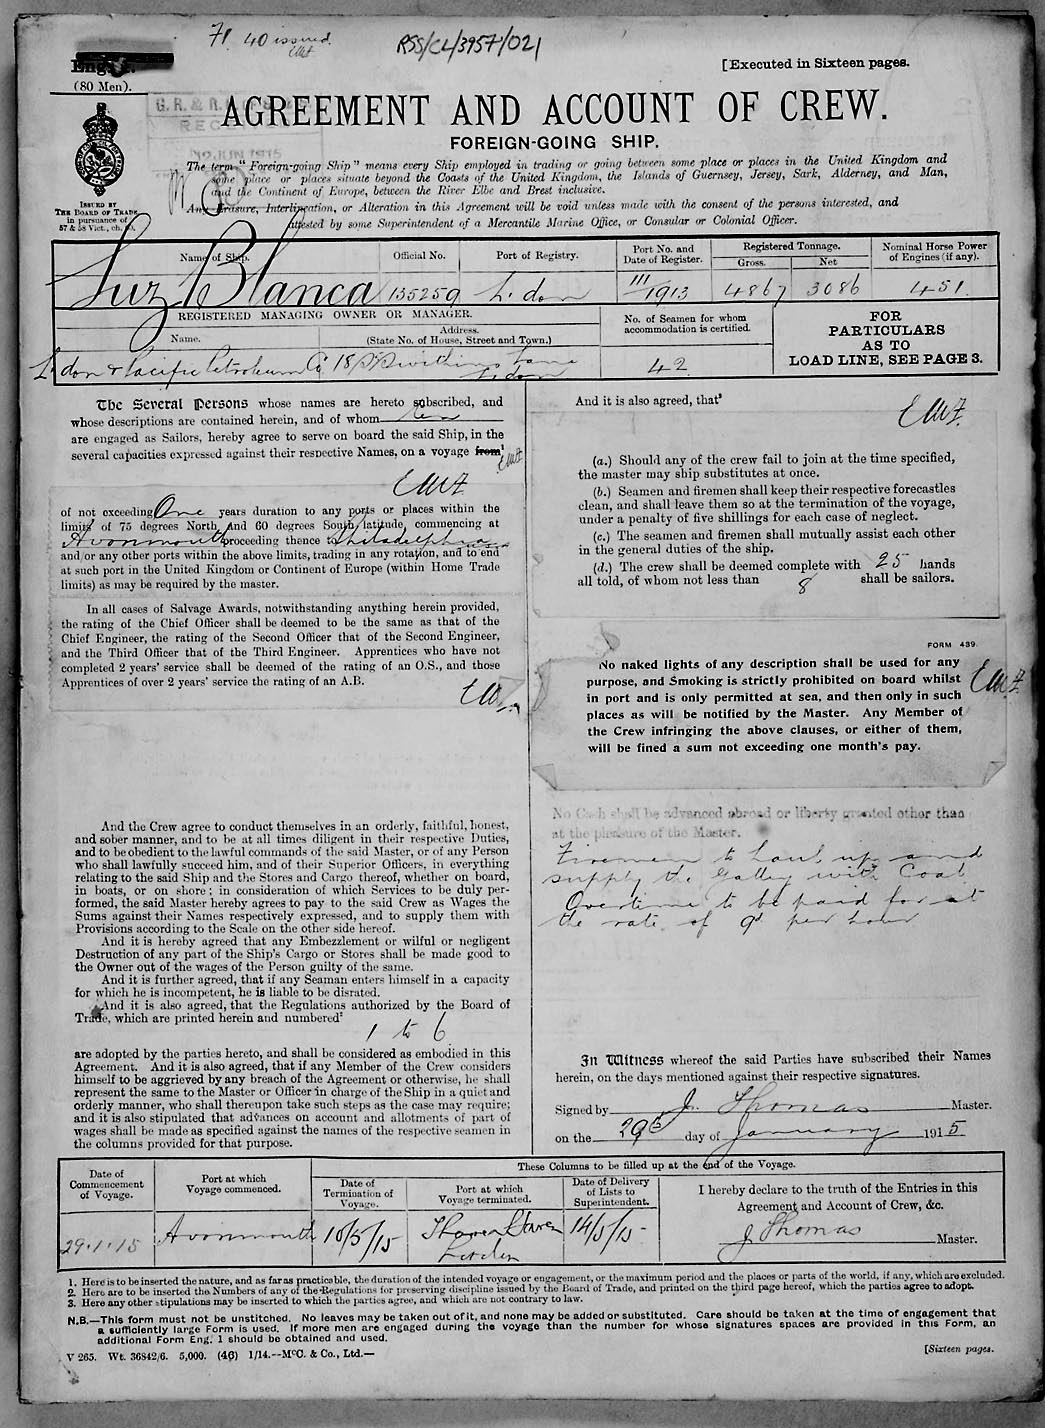 71. 40 issued.
RSS/CL/3957/021
(80 Men).
[Executed in Sixteen pages.
G. R. & R.
AGREEMENT AND ACCOUNT OF CREW.
FOREIGN-GOING SHIP.
JUN 1915
The term "Foreign-going Ship" means every Ship employed in trading or going between some place or places in the United Kingdom and
some place or places situate beyond the Coasts of the United Kingdom, the Islands of Guernsey, Jersey, Sark, Alderney, and Man,
and the Continent of Europe, between the River Elbe and Brest inclusive.
Any Erasure, Interlineation, or Alteration in this Agreement will be void unless made with the consent of the persons interested, and
attested by some Superintendent of a Mercantile Marine Office, or Consular or Colonial Officer.
ISSUED BY
THE BOARD OF TRADE
in pursuance of
57 & 58 Vict., ch. 60.
Name of Ship.
Official No.
Port of Registry.
Port No. and
Date of Register.
Registered Tonnage.
Gross.
Net
Nominal Horse Power
of Engines (if any).
Luz Blanca
135259
L'don
111/1913
4867
3086
451
REGISTERED MANAGING OWNER OR MANAGER.
Name.
Address.
(State No. of House, Street and Town.)
No. of Seamen for whom
accommodation is certified.
FOR
PARTICULARS
AS TO
LOAD LINE, SEE PAGE 3.
L'don & Pacific Petroleum Co
18 St Swithins Lane
L'don
42
The Several Persons whose names are hereto subscribed, and
whose descriptions are contained herein, and of whom ten
are engaged as Sailors, hereby agree to serve on board the said Ship, in the
several capacities expressed against their respective Names, on a voyage from¹
of not exceeding One years duration to any ports or places within the
limits of 75 degrees North and 60 degrees South latitude, commencing at
Avonmouth proceeding thence Philadelphia
and/or any other ports within the above limits, trading in any rotation, and to end
at such port in the United Kingdom or Continent of Europe (within Home Trade
limits) as may be required by the master.
In all cases of Salvage Awards, notwithstanding anything herein provided,
the rating of the Chief Officer shall be deemed to be the same as that of the
Chief Engineer, the rating of the Second Officer that of the Second Engineer,
and the Third Officer that of the Third Engineer. Apprentices who have not
completed 2 years' service shall be deemed of the rating of an O.S., and those
Apprentices of over 2 years' service the rating of an A.B.
And the Crew agree to conduct themselves in an orderly, faithful, honest,
and sober manner, and to be at all times diligent in their respective Duties,
and to be obedient to the lawful commands of the said Master, or of any Person
who shall lawfully succeed him, and of their Superior Officers, in everything
relating to the said Ship and the Stores and Cargo thereof, whether on board,
in boats, or on shore; in consideration of which Services to be duly per-
formed, the said Master hereby agrees to pay to the said Crew as Wages the
Sums against their Names respectively expressed, and to supply them with
Provisions according to the Scale on the other side hereof.
And it is hereby agreed that any Embezzlement or wilful or negligent
Destruction of any part of the Ship's Cargo or Stores shall be made good to
the Owner out of the wages of the Person guilty of the same.
And it is further agreed, that if any Seaman enters himself in a capacity
for which he is incompetent, he is liable to be disrated.
And it is also agreed, that the Regulations authorized by the Board of
Trade, which are printed herein and numbered²
1 to 6
are adopted by the parties hereto, and shall be considered as embodied in this
Agreement. And it is also agreed, that if any Member of the Crew considers
himself to be aggrieved by any breach of the Agreement or otherwise, he shall
represent the same to the Master or Officer in charge of the Ship in a quiet and
orderly manner, who shall thereupon take such steps as the case may require;
and it is also stipulated that advances on account and allotments of part of
wages shall be made as specified against the names of the respective seamen in
the columns provided for that purpose.
And it is also agreed, that³
(a.) Should any of the crew fail to join at the time specified,
the master may ship substitutes at once.
(b.) Seamen and firemen shall keep their respective forecastles
clean, and shall leave them so at the termination of the voyage,
under a penalty of five shillings for each case of neglect.
(c.) The seamen and firemen shall mutually assist each other
in the general duties of the ship.
(d.) The crew shall be deemed complete with 25 hands
all told, of whom not less than 8 shall be sailors.
FORM 439.
No naked lights of any description shall be used for any
purpose, and Smoking is strictly prohibited on board whilst
in port and is only permitted at sea, and then only in such
places as will be notified by the Master. Any Member of
the Crew infringing the above clauses, or either of them,
will be fined a sum not exceeding one month's pay.
No Cash shall be advanced abroad or liberty granted other than
at the pleasure of the Master.
Firemen to haul up and
supply the Galley with Coal
Overtime to be paid for at
the rate of 9d per hour
In Witness whereof the said Parties have subscribed their Names
herein, on the days mentioned against their respective signatures.
Signed by J. Thomas Master.
on the 29th day of January 1915
Date of
Commencement
of Voyage.
Port at which
Voyage commenced.
These Columns to be filled up at the end of the Voyage.
Date of
Termination of
Voyage.
Port at which
Voyage terminated.
Date of Delivery
of Lists to
Superintendent.
I hereby declare to the truth of the Entries in this
Agreement and Account of Crew, &c.
29.1.15
Avonmouth
10/5/15
Thames Haven
London
14/5/15
J Thomas Master.
1. Here is to be inserted the nature, and as far as practicable, the duration of the intended voyage or engagement, or the maximum period and the places or parts of the world, if any, which are excluded.
2. Here are to be inserted the Numbers of any of the Regulations for preserving discipline issued by the Board of Trade, and printed on the third page hereof, which the parties agree to adopt.
3. Here any other stipulations may be inserted to which the parties agree, and which are not contrary to law.
N.B.—This form must not be unstitched. No leaves may be taken out of it, and none may be added or substituted. Care should be taken at the time of engagement that
a sufficiently large Form is used. If more men are engaged during the voyage than the number for whose signatures spaces are provided in this Form, an
additional Form Eng. 1 should be obtained and used.
V 265. Wt. 36842/6. 5,000. (46) 1/14.--McC. & Co., Ltd.—
[Sixteen pages.